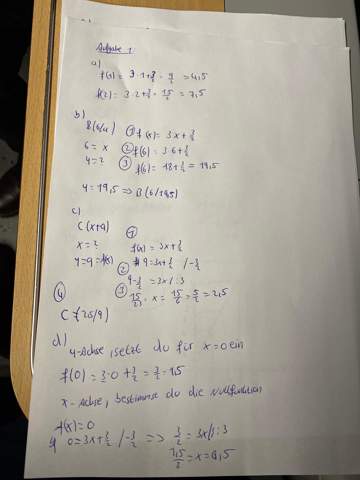 Aufgabe 1
a)
f(1) = 3·1+3/2 = 9/2 = 4,5
f(2) = 3·2+3/2 = 15/2 = 7,5
b)
B(6/u) ① f(x) = 3x+3/2
6 = x ② f(6) = 3·6+3/2
y = ? ③ f(6) = 18+3/2 = 19,5
y = 19,5 => B(6/19,5)
c)
C(x+9) ①
x = ? f(x) = 3x+3/2
y=9=f(x) ② 9=3x+3/2 /-3/2
9-3/2 = 3x /:3
④ ③ 15/2·3 = x = 15/6 = 5/2 = 2,5
C = (2,5/9)
d)
y-Achse, setzt du für x=0 ein
f(0) = 3·0+3/2 = 3/2 = 1,5
x-Achse, bestimmst du die Nullfunktion
f(x)=0
0=3x+3/2 /-3/2 => 3/2 = 3x/:3
1,5/3 = x = 0,5